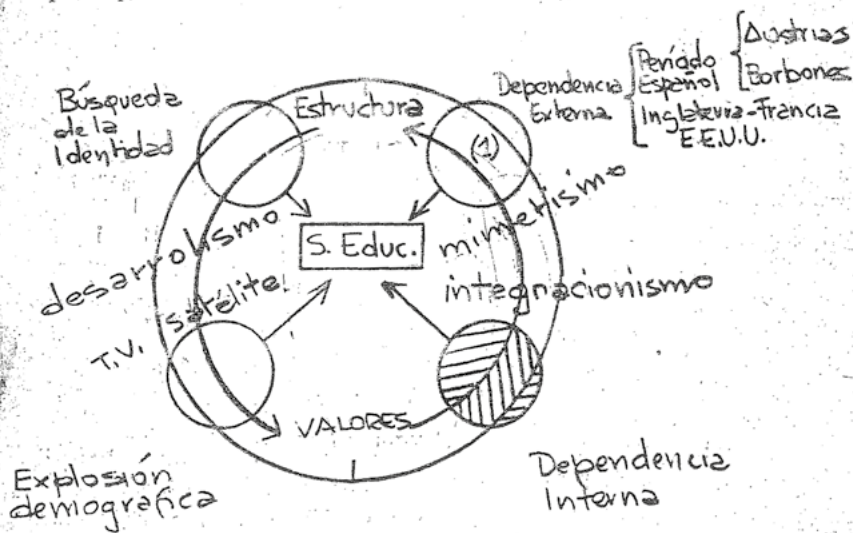 Búsqueda
de la
Identidad
Estructura
Dependencia
Externa
Período
Español
Austrias
Borbones
Inglaterra-Francia
E.E.U.U.
(1)
desarrollismo
S. Educ.
mimetismo
T.V. satélite
integracionismo
VALORES
Explosión
demográfica
Dependencia
Interna